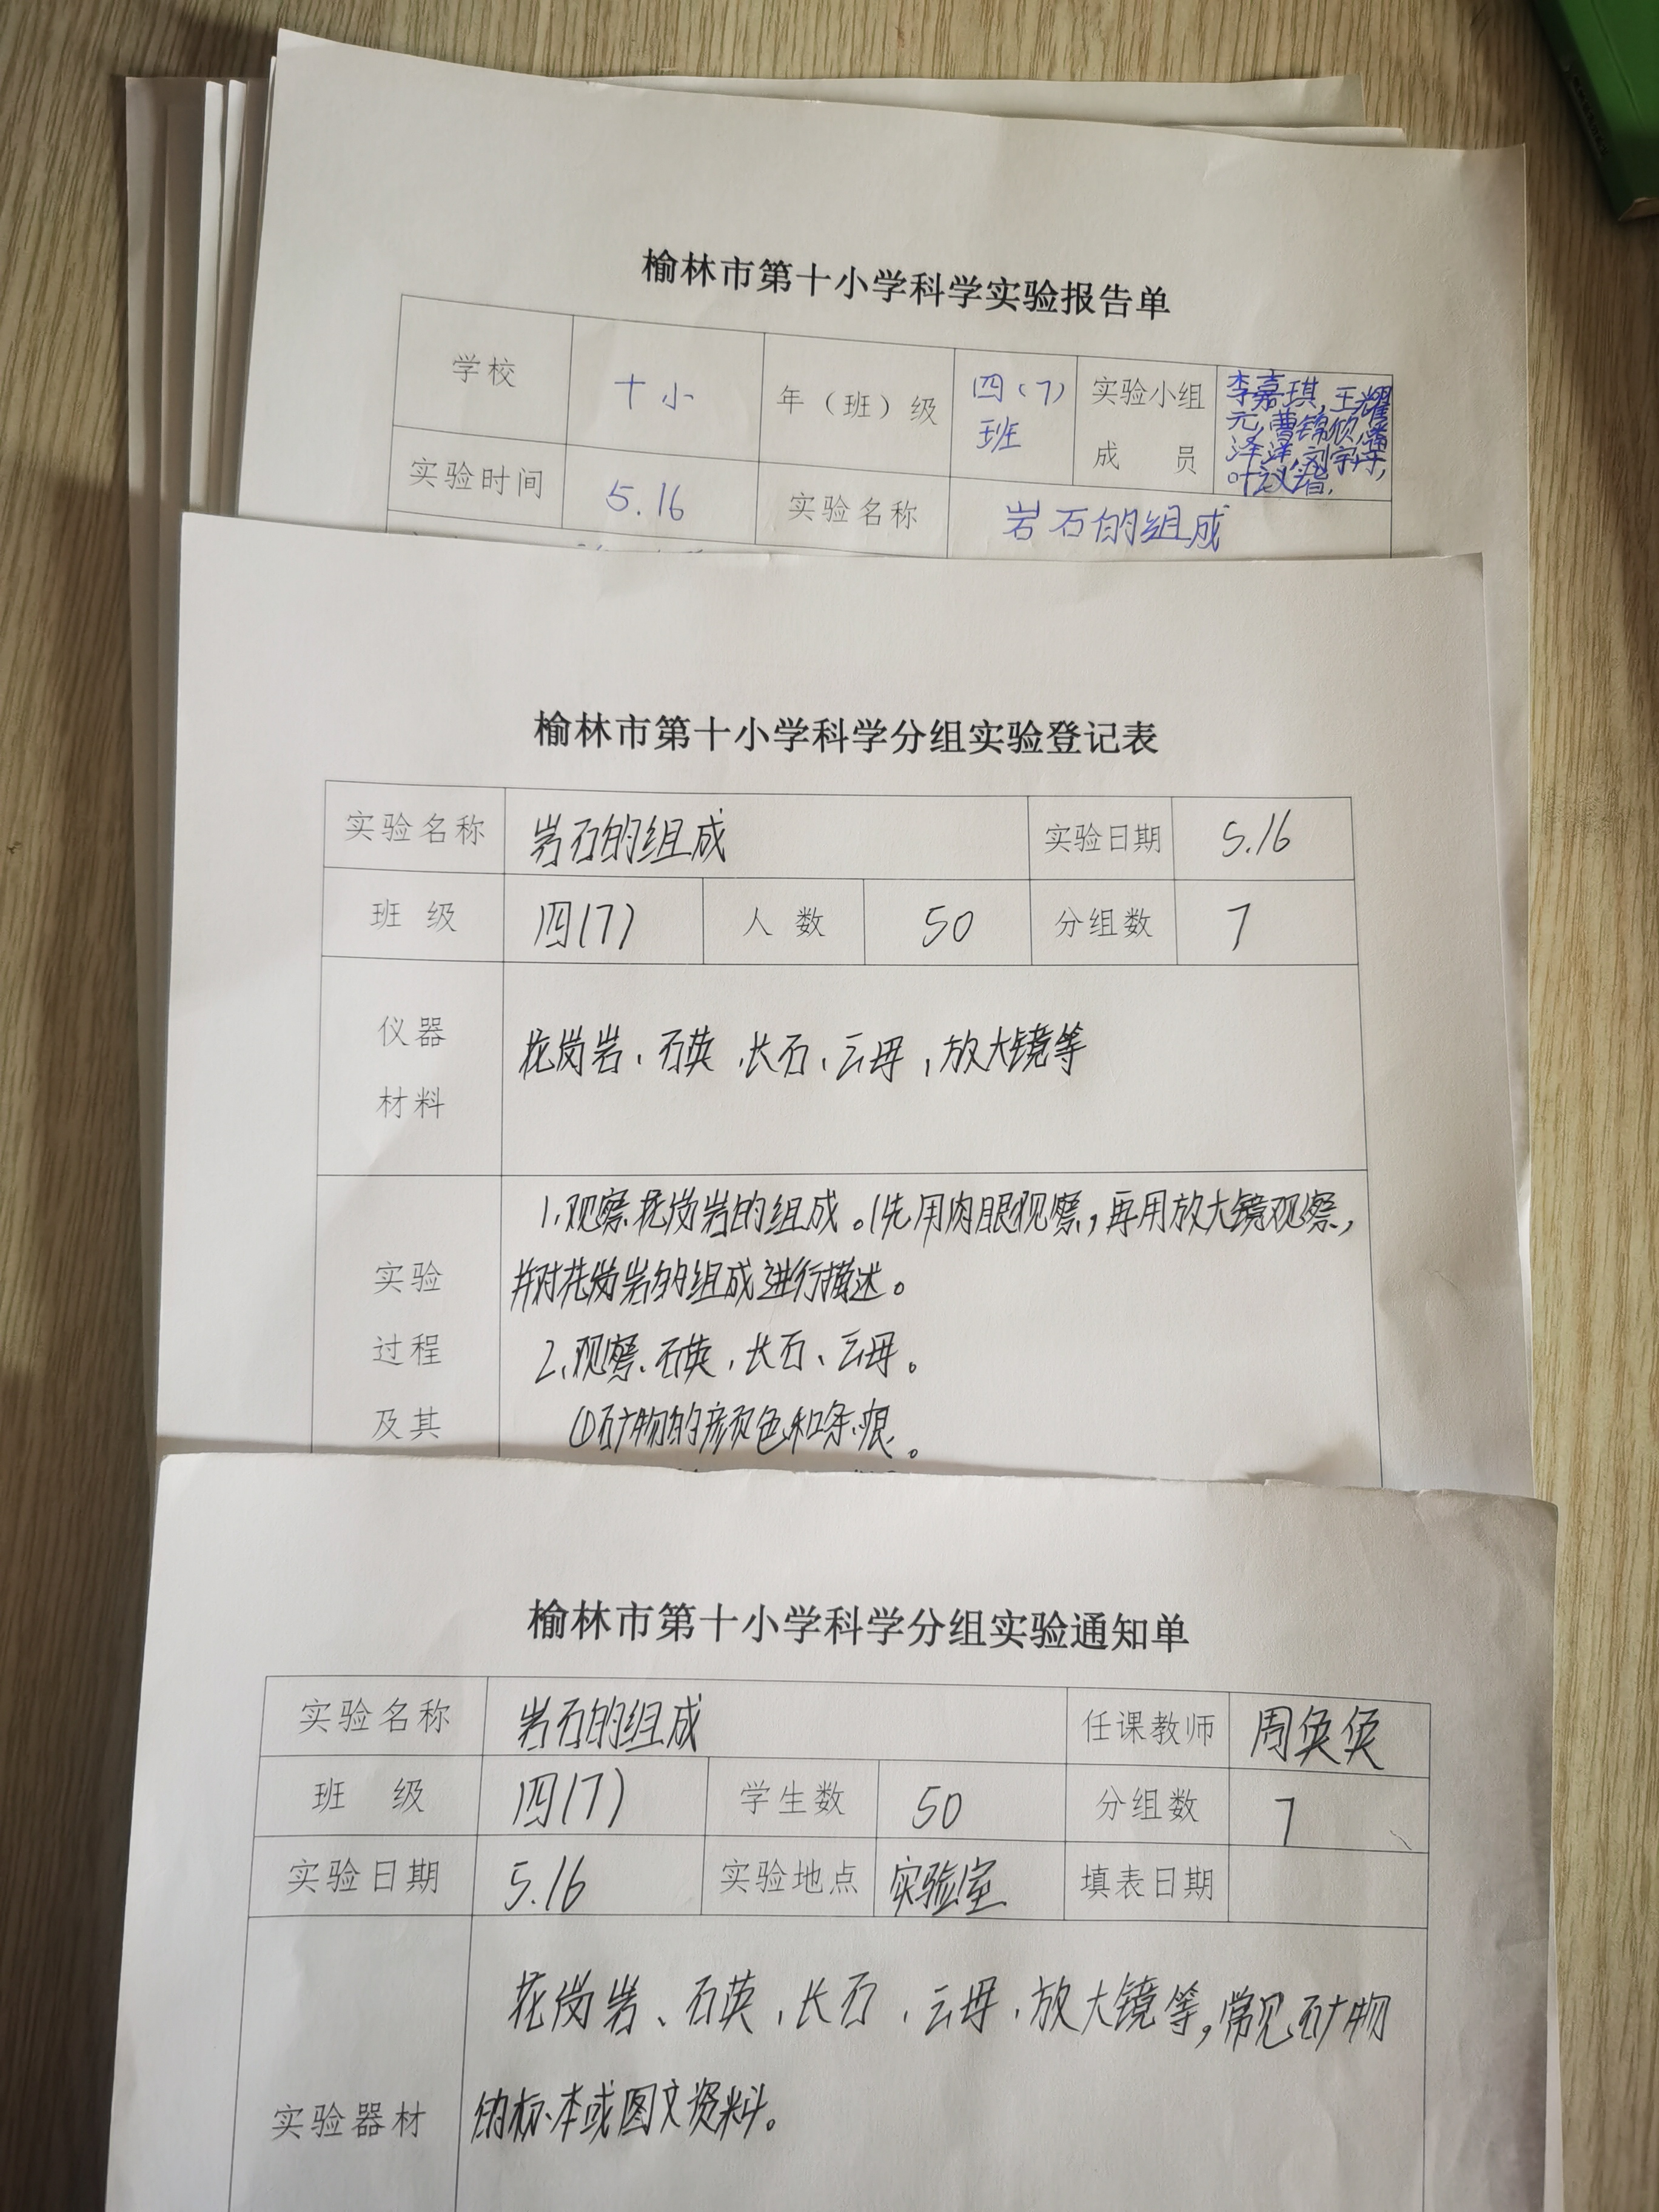 榆林市第十小学科学实验报告单
学校 十小 年（班）级 四（7）班 实验小组成员 李嘉琪,王耀
元,曹锦
泽洋,刘宇
叶
实验时间 5.16 实验名称 岩石的组成
榆林市第十小学科学分组实验登记表
实验名称 岩石的组成 实验日期 5.16
班级 四(7) 人数 50 分组数 7
仪器材料 花岗岩、石英、长石、云母、放大镜等
实验过程及其
1、观察花岗岩的组成。(先用肉眼观察，再用放大镜观察，
并对花岗岩的组成进行描述。
2、观察石英、长石、云母。
①矿物的颜色和条痕。
榆林市第十小学科学分组实验通知单
实验名称 岩石的组成 任课教师 周
班级 四(7) 学生数 50 分组数 7
实验日期 5.16 实验地点 实验室 填表日期
实验器材
花岗岩、石英、长石、云母、放大镜等,常见矿物
的标本或图文资料。